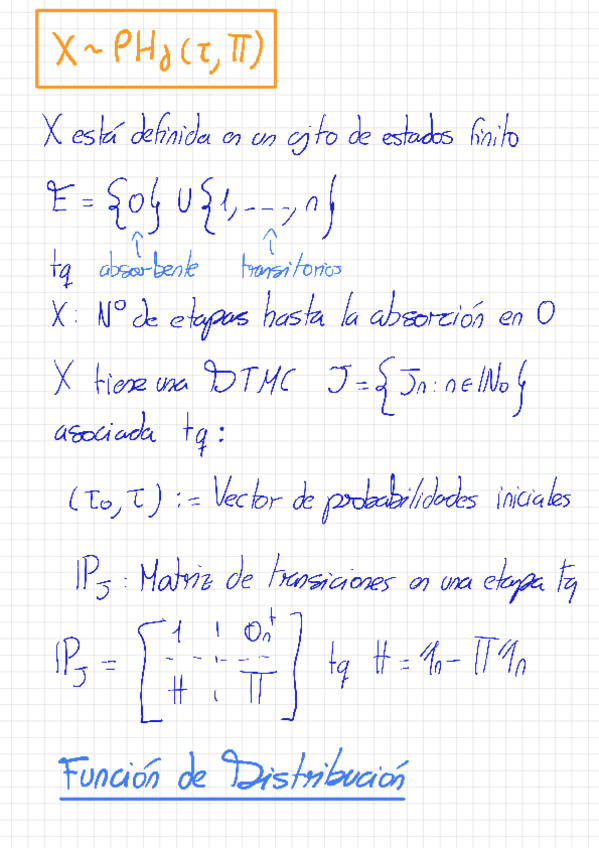 X ~ PH∂(τ, Π)
X está definida en un cjto de estados finito
E = {0} ∪ {1, ..., n}
tq absorbente transitorios
X: Nº de etapas hasta la absorción en 0
X tiene una DTMC J = {Jn : n ∈ ℕ₀}
asociada tq:
(τ₀, τ) := Vector de probabilidades iniciales
ℙJ : Matriz de transiciones en una etapa tq
ℙJ = [ 1 ¦ 0nᵗ
H ¦ Π ] tq H = 𝟙n − Π𝟙n
Función de Distribución